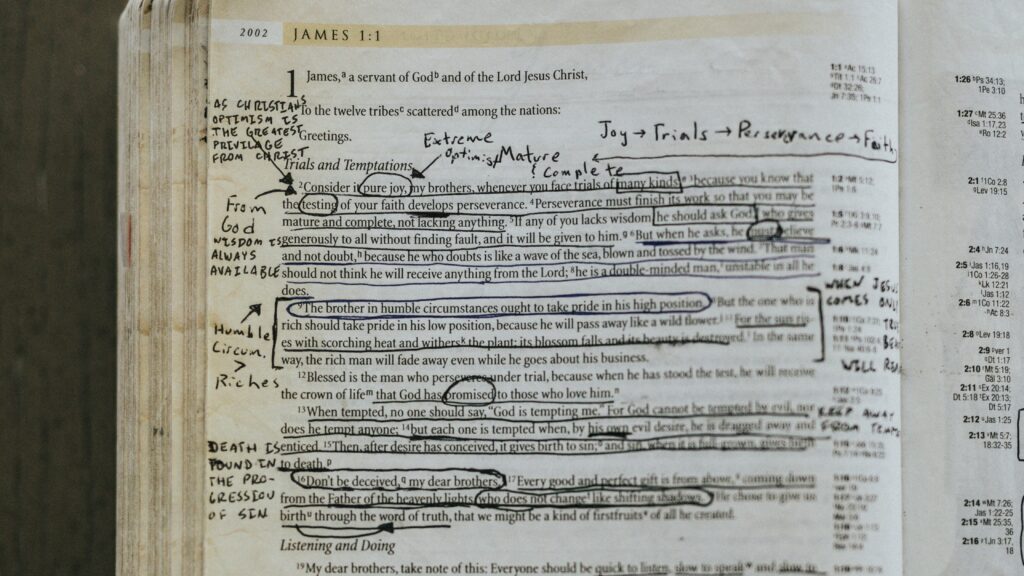 2002 JAMES 1:1
1 James,ᵃ a servant of Godᵇ and of the Lord Jesus Christ,
To the twelve tribesᶜ scatteredᵈ among the nations:
Greetings.
Trials and Temptations
²Consider it pure joy, my brothers, whenever you face trials of many kinds, ³because you know that
the testing of your faith develops perseverance. ⁴Perseverance must finish its work so that you may be
mature and complete, not lacking anything. ⁵If any of you lacks wisdom he should ask God, who gives
generously to all without finding fault, and it will be given to him. ⁶But when he asks, he must believe
and not doubt, because he who doubts is like a wave of the sea, blown and tossed by the wind. ⁷That man
should not think he will receive anything from the Lord; ⁸he is a double-minded man, unstable in all he
does.
⁹The brother in humble circumstances ought to take pride in his high position. ¹⁰But the one who is
rich should take pride in his low position, because he will pass away like a wild flower. ¹¹For the sun ris-
es with scorching heat and withers the plant; its blossom falls and its beauty is destroyed. In the same
way, the rich man will fade away even while he goes about his business.
¹²Blessed is the man who perseveres under trial, because when he has stood the test, he will receive
the crown of lifeᵐ that God has promised to those who love him.ⁿ
¹³When tempted, no one should say, "God is tempting me." For God cannot be tempted by evil, nor
does he tempt anyone; ¹⁴but each one is tempted when, by his own evil desire, he is dragged away and
enticed. ¹⁵Then, after desire has conceived, it gives birth to sin; and sin, when it is full-grown, gives birth
to death.ᵖ
¹⁶Don't be deceived, my dear brothers. ¹⁷Every good and perfect gift is from above, coming down
from the Father of the heavenly lights, who does not change like shifting shadows. ¹⁸He chose to give us
birth through the word of truth, that we might be a kind of firstfruits of all he created.
Listening and Doing
¹⁹My dear brothers, take note of this: Everyone should be quick to listen, slow to speak and slow to
AS CHRISTIANS
OPTIMISM IS
THE GREATEST
PRIVILAGE
FROM CHRIST
From
God
WISDOM IS
ALWAYS
AVAILABLE
Humble
Circum.
>
Riches
DEATH IS
FOUND IN
THE PRO-
GRESSION
OF SIN
Extreme
optimism
Mature
& Complete
Joy → Trials → Perseverance → Faith
WHEN JESUS
COMES ONLY
WILL
KEEP AWAY
FROM
1:1 ᵃAc 15:13
ᵇTit 1:1 ᶜAc 26:7
ᵈDt 32:26;
Jn 7:35; 1Pe 1:1
1:26 Ps 34:13;
1Pe 3:10
1:27 Mt 25:36
Isa 1:17,23
Ro 12:2
2:1 1Co 2:8
Lev 19:15
2:4 Jn 7:24
2:5 Jas 1:16,19
1Co 1:26-28
Lk 12:21
Jas 1:12
2:6 1Co 11:22
Ac 8:3
2:8 Lev 19:18
2:9 ver 1
Dt 1:17
2:10 Mt 5:19;
Gal 3:10
2:11 Ex 20:14;
Dt 5:18 Ex 20:13;
Dt 5:17
2:12 Jas 1:25
2:13 Mt 5:7;
18:32-35
2:14 Mt 7:26;
Jas 1:22-25
2:15 Mt 25:35,
36
2:16 1Jn 3:17,
18